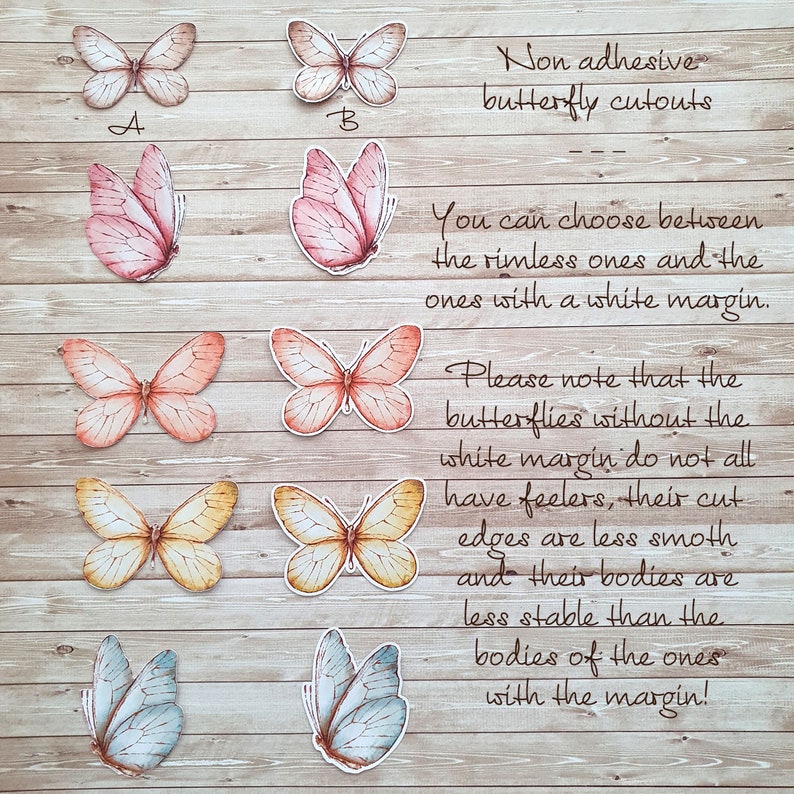 A
B
Non adhesive
butterfly cutouts
- - -
You can choose between
the rimless ones and the
ones with a white margin.
Please note that the
butterflies without the
white margin do not all
have feelers, their cut
edges are less smoth
and their bodies are
less stable than the
bodies of the ones
with the margin!